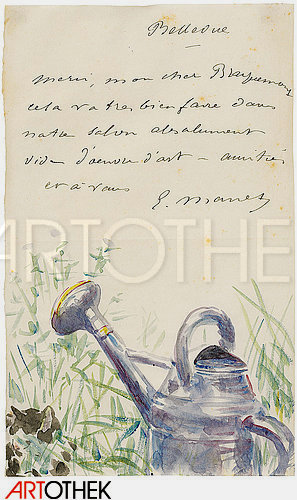 Bellevue
merci, mon cher Bracquemond
cela va très bien faire dans
notre salon absolument
vide d'œuvre d'art - amitiés
et à vous
E. Manet
ARTOTHEK
ARTOTHEK